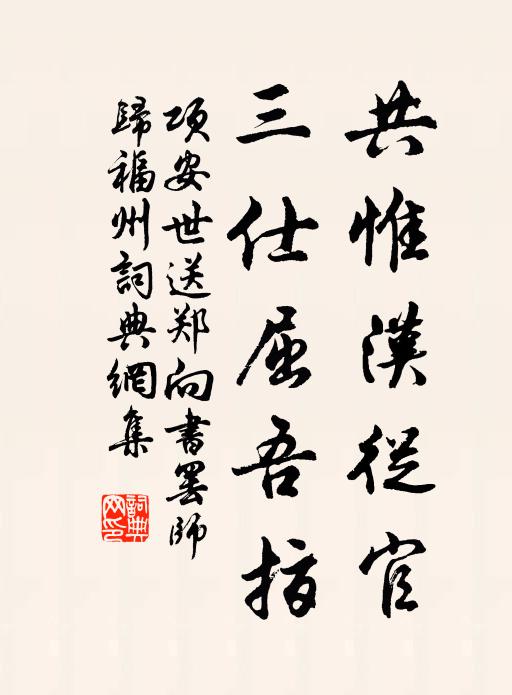 共惟漢從官
三仕屈吾指
項安世送郑向書罢師
歸福州詞典網集
詞典網印